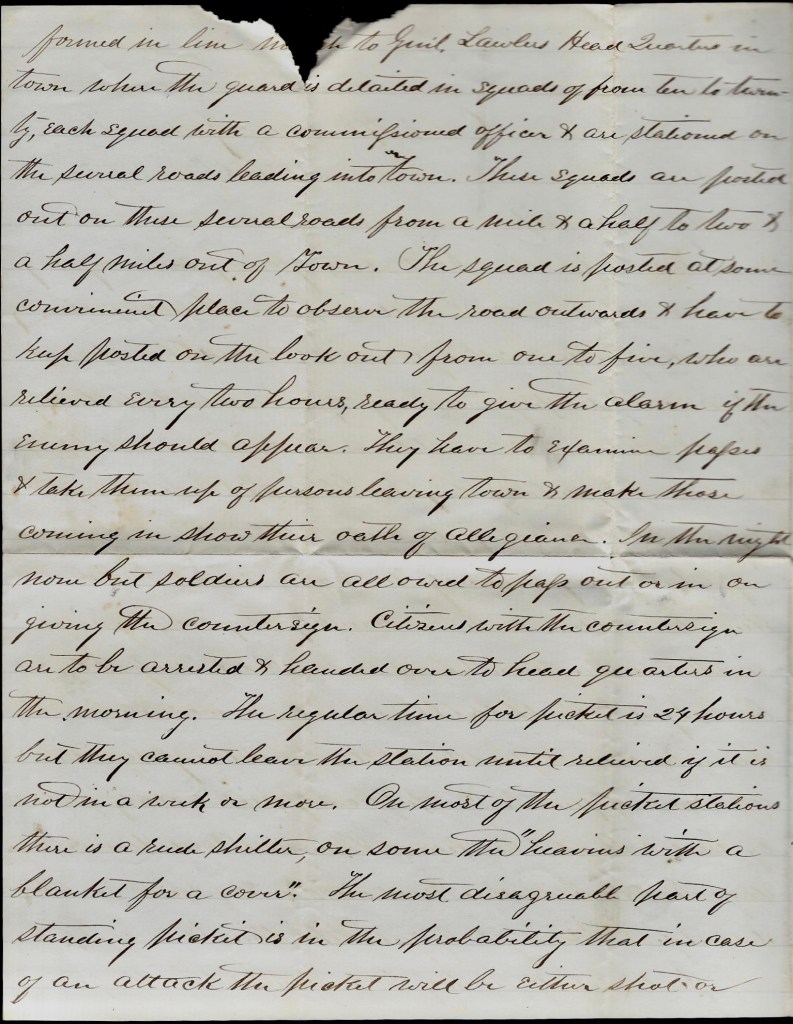 formed in line to Genl. Lawlers Head Quarters in
town where the guard is detailed in squads of from ten to twen-
ty, each squad with a commissioned officer & are stationed on
the several roads leading into town. These squads are posted
out on these several roads from a mile & a half to two &
a half miles out of Town. The squad is posted at some
convenient place to observe the road outwards & have to
keep posted on the look out from one to five, who are
relieved every two hours, ready to give the alarm if the
Enemy should appear. They have to examine passes
& take them up of persons leaving town & make those
coming in show their oath of allegiance. In the night
none but soldiers are allowed to pass out or in on
giving the countersign. Citizens with the countersign
are to be arrested & handed over to head quarters in
the morning. The regular time for picket is 24 hours
but they cannot leave the station until relieved if it is
not in a week or more. On most of the picket stations
there is a rude shelter, on some the "heavins with a
blanket for a cover". The most disagreeable part of
standing picket is in the probability that in case
of an attack the picket will be either shot or